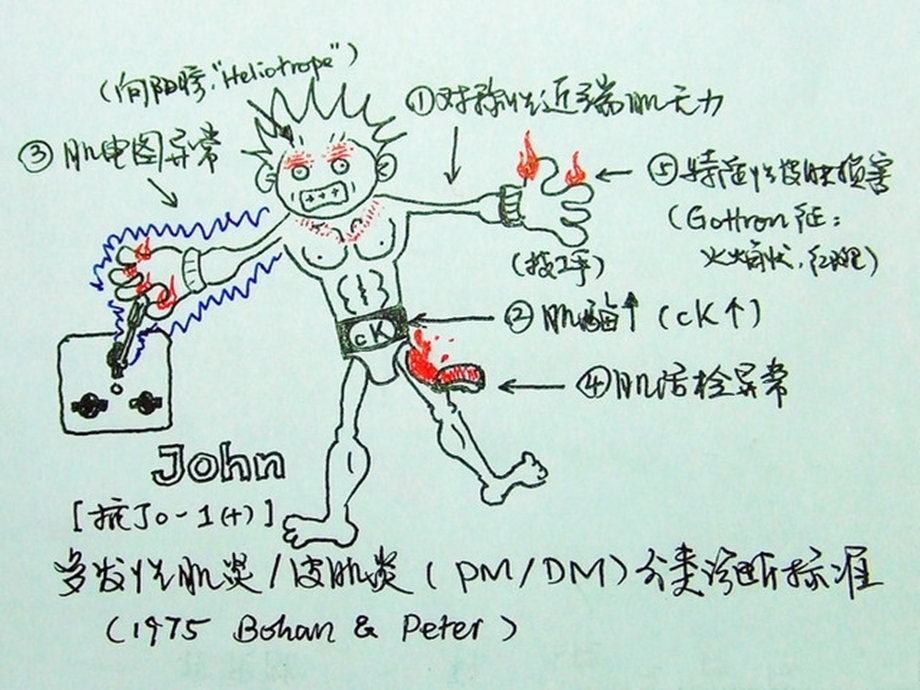 (向阳疹,"Heliotrope")
①对称性近端肌无力
③肌电图异常
⑤特征性皮肤损害
(Gottron征:
火焰状,红斑)
(技工手)
②肌酶↑(CK↑)
CK
④肌活检异常
John
[抗Jo-1(+)]
多发性肌炎/皮肌炎(PM/DM)分类诊断标准
(1975 Bohan & Peter)